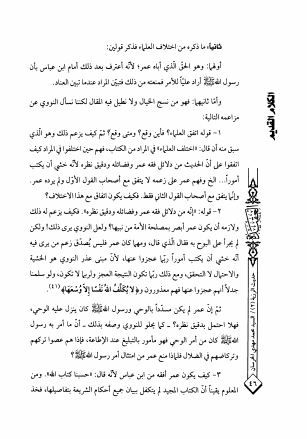 ثانياً: ما ذكره من اختلاف العلماء فذكر قولين:
أولهما: وهو الحق الّذي أباه عمر؛ لأنّه أعترف بعد ذلك أمام ابن عباس بأن
رسول الله ﷺ أراد عليّاً للأمر فمنعته من ذلك فتبيّن المراد عندما تبين العناد.
وأمّا ثانيهما: فهو من نسج الخيال ولا نطيل فيه المقال لكننا نسأل النووي عن
مزاعمه التالية:
١ - قوله اتفق العلماء؟ فأين وقع؟ ومتى وقع؟ ثمّ كيف يزعم ذلك وهو الّذي
سبق منه أن قال: «اختلف العلماء» في المراد من الكتاب، فهم حين اختلفوا في المراد كيف
اتفقوا على أنّ الحديث من دلائل فقه عمر وفضائله ودقيق نظره لأنّه خشي أن يكتب
أموراً... الخ وفهم عمر على زعمه لا يتفق مع أصحاب القول الأوّل ولم يرده عمر.
وإنّما يتفق مع أصحاب القول الثاني فقط. فكيف يكون اتفاق مع هذا الاختلاف؟
٢ - قوله: «إنّه من دلائل فقه عمر وفضائله ودقيق نظره». فكيف يزعم له ذلك
ولازمه أن يكون عمر أبصر بمصلحة الأمة من نبيها؟ ولعل النووي يرى ذلك! ولكن
لم يجرأ على البوح به فقال الّذي قال، ومهما كان عمر فليس يُصدّق زعم من يرى فيه
أنّه خشي أن يكتب أموراً ربّما عجزوا عنها، لأنّ مبنى عذر النووي هو الخشية
والاحتمال لا التحقق، ومع ذلك ربّما تكون النتيجة العجز ولربما لا يكون، ولو سلمنا
جدلاً أنهم عجزوا عنها فهم معذورون و﴿لا يُكَلِّفُ اللهُ نَفْساً إِلاَّ وُسْعَهَا﴾(٤١).
ثمّ إنّ عمر لم يكن مسدّداً بالوحي ورسول الله ﷺ كان ينزل عليه الوحي،
فهلا احتمل بدقيق نظره؟ - كما يحلو للنووي وصفه بذلك - أنّ ما أمر به رسول
الله ﷺ كان من الوحي فهو مأمور بالتبليغ عند الإطاعة، فإذا هم عصوا تركهم
وتركاضهم في الضلال فلماذا منع عمر من امتثال أمر رسول الله ﷺ؟
٣ - كيف يكون عمر أفقه من ابن عباس لأنّه قال: «حسبنا كتاب الله». ومن
المعلوم يقيناً أنّ الكتاب المجيد لم يتكفل ببيان جميع أحكام الشريعة بتفاصيلها، فخذ
٤٦